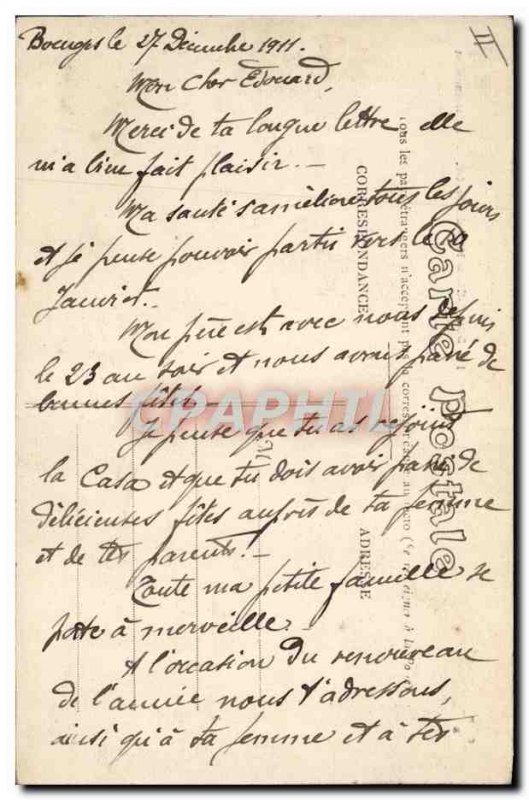 Bourges le 27 Décembre 1911.
II
Mon Cher Edouard,
Merci de ta longue lettre elle
m'a bien fait plaisir. —
Ma santé s'améliore tous les jours
et je pense pouvoir partir vers le
Janvier.
Mon père est avec nous depuis
le 23 au soir et nous avons passé de
bonnes fêtes. —
Je pense que tu as rejoint
la Casa et que tu dois avoir passé de
délicieuses fêtes auprès de ta femme
et de tes parents. —
Toute ma petite famille se
porte à merveille.
A l'occasion du renouveau
de l'année nous t'adressons,
ainsi qu'à ta femme et à tes
Carte Postale
Tous les pays étrangers n'acceptent pas la correspondance au recto
CORRESPONDANCE
ADRESSE
CPAPHIL